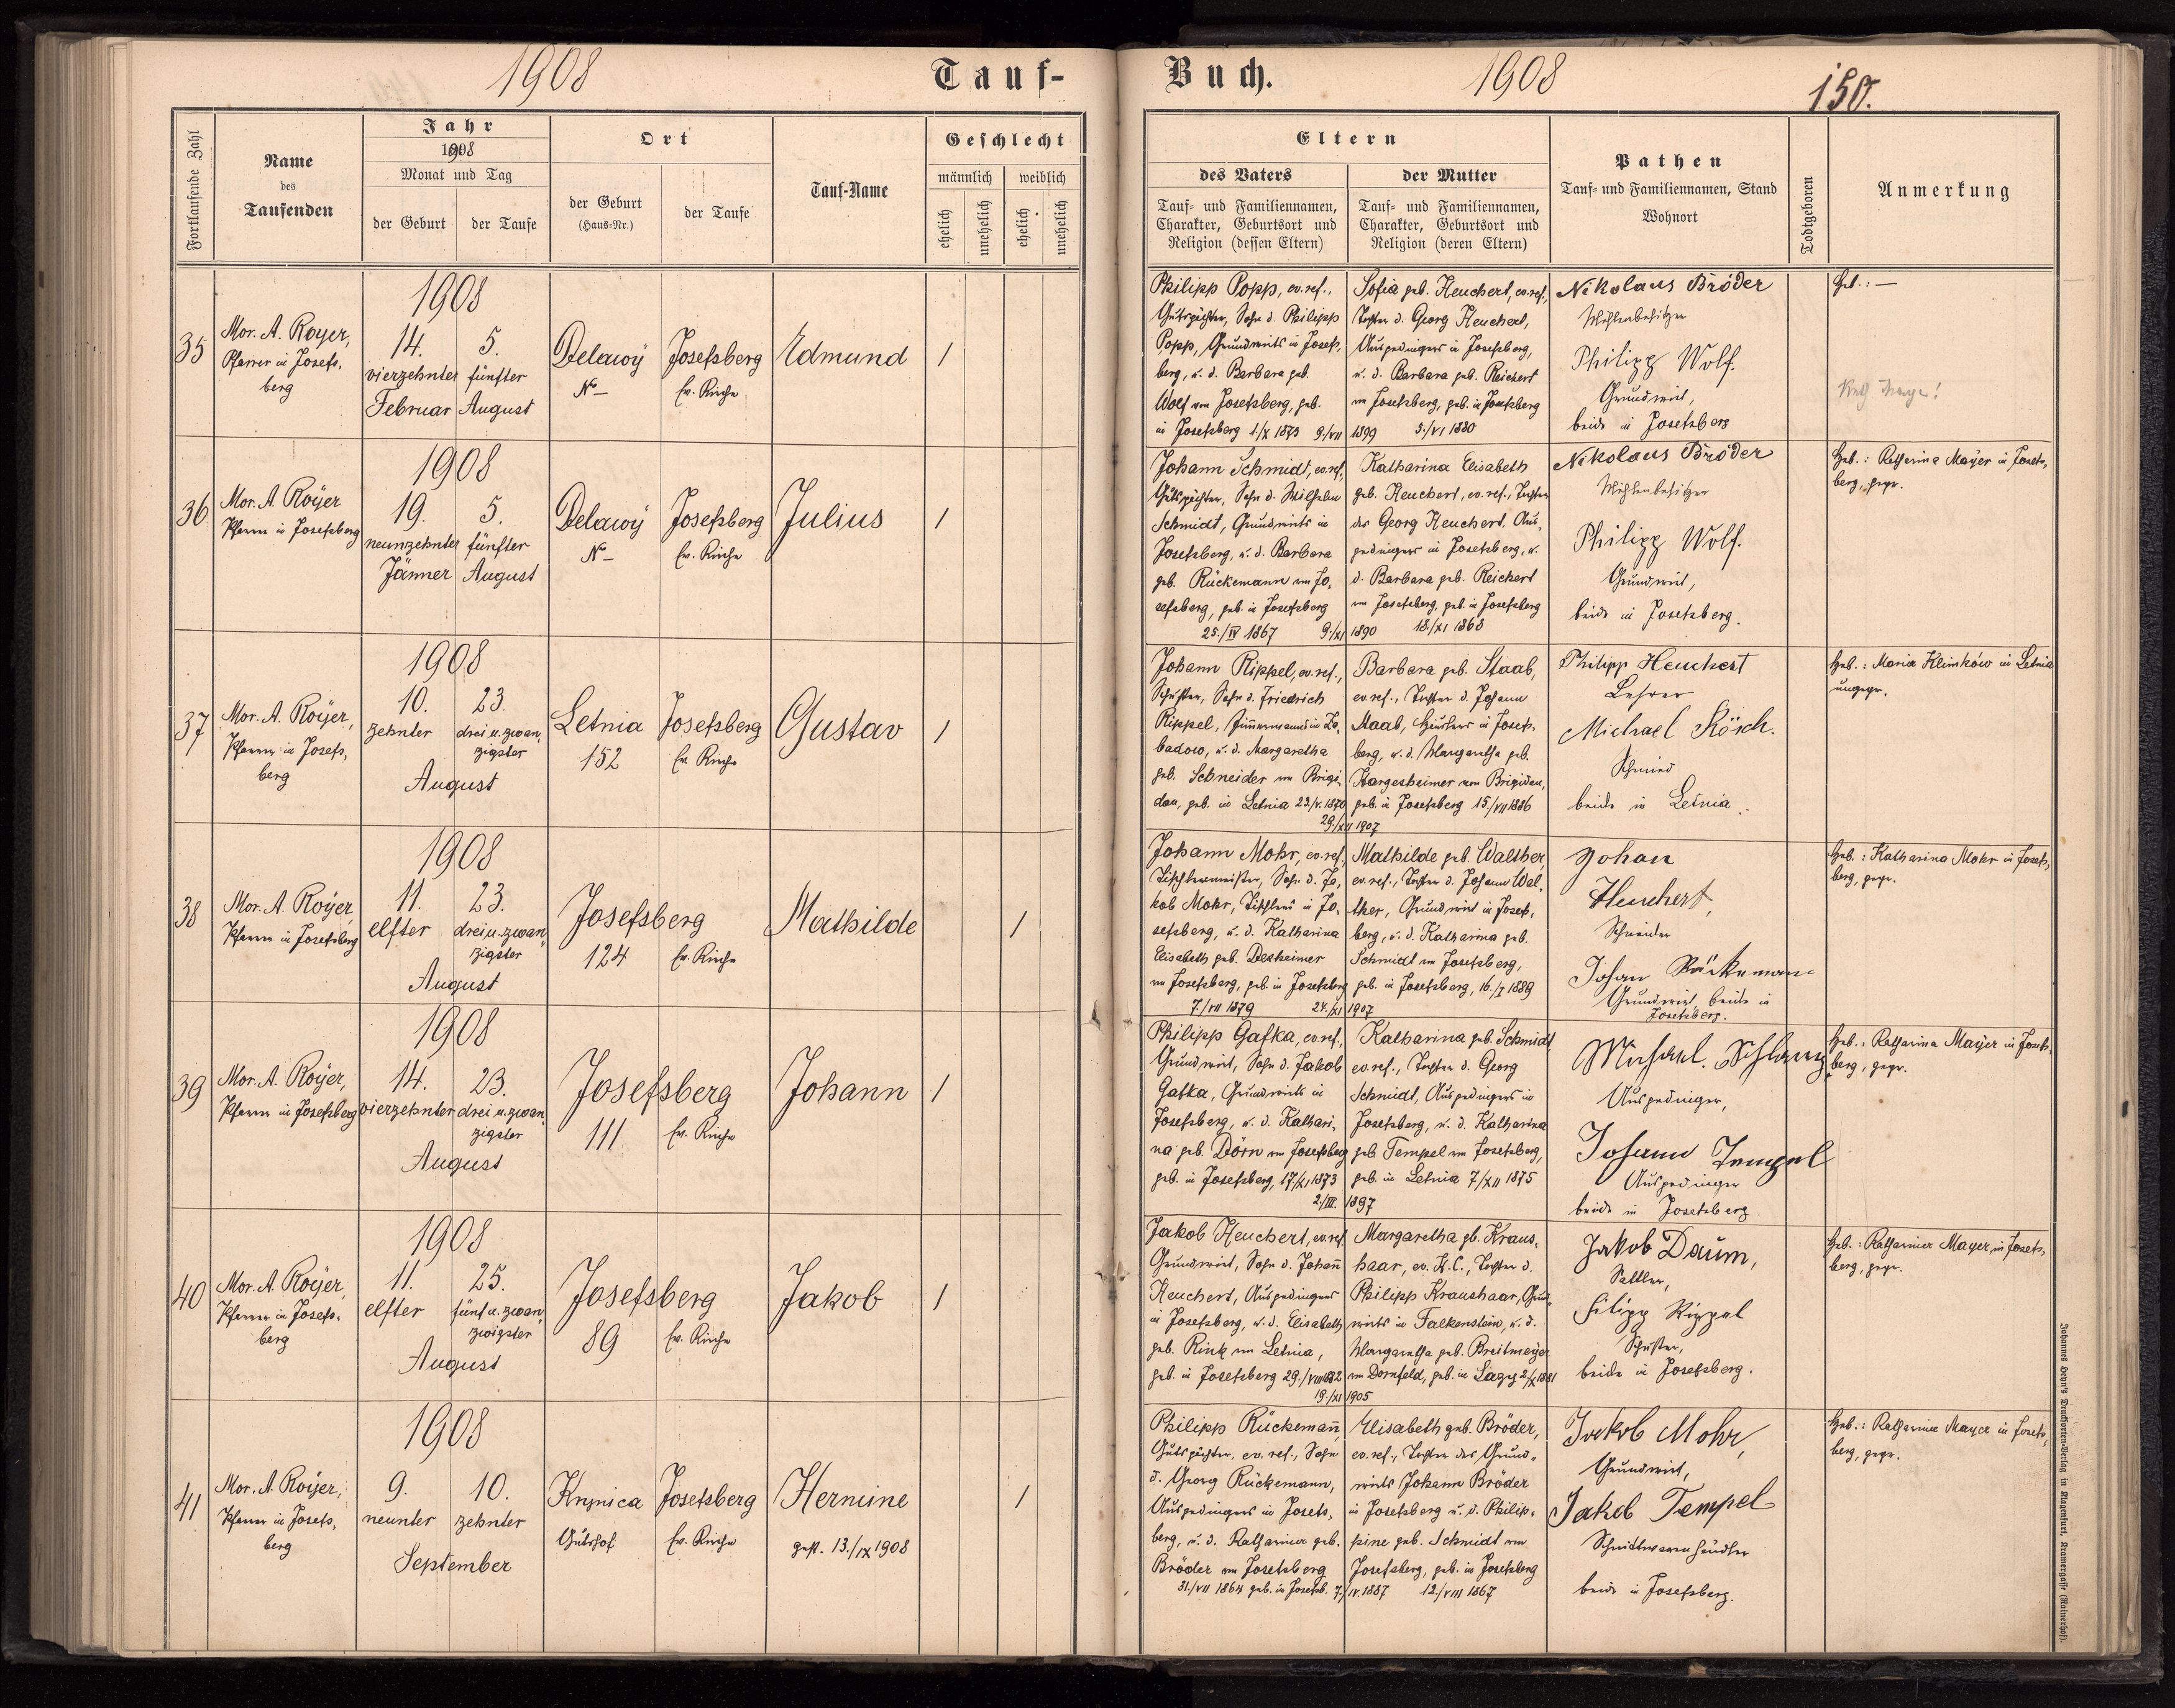 1908
Tauf-
Buch.
1908
150.
Fortlaufende Zahl
Name
des
Taufenden
Jahr
1908
Monat und Tag
der Geburt
der Taufe
Ort
der Geburt
(Haus-Nr.)
der Taufe
Tauf-Name
Geschlecht
männlich
weiblich
ehelich
unehelich
ehelich
unehelich
Eltern
des Vaters
Tauf- und Familiennamen,
Charakter, Geburtsort und
Religion (dessen Eltern)
der Mutter
Tauf- und Familiennamen,
Charakter, Geburtsort und
Religion (deren Eltern)
Pathen
Tauf- und Familiennamen, Stand
Wohnort
Todtgeboren
Anmerkung
35
Mor. A. Royer,
Pfarrer in Josefs-
berg
1908
14.
vierzehnter
Februar
5.
fünfter
August
Delawÿ
No –
Josefsberg
Ev. Kirche
Edmund
1
Philipp Popp, ev. ref.,
Gutspächter, Sohn d. Philipp
Popp, Grundwirts in Josefs-
berg, u. d. Barbara geb.
Wolf von Josefsberg, geb.
in Josefsberg 1./X 1873 9./VII
Sofia geb. Heuchert, ev. ref.,
Tochter d. Georg Heuchert,
Ausgedingers in Josefsberg,
u. d. Barbara geb. Reichert
von Josefsberg, geb. in Josefsberg
1899 5./VI 1880
Nikolaus Bröder
Mühlenbesitzer
Philipp Wolf.
Grundwirt,
beide in Josefsberg
Heb.: —
36
Mor. A. Roÿer
Pfarrer in Josefsberg
1908
19.
neunzehnter
Jänner
5.
fünfter
August
Delawÿ
No –
Josefsberg
Ev. Kirche
Julius
1
Johann Schmidt, ev. ref.,
Gutspächter, Sohn d. Wilhelm
Schmidt, Grundwirts in
Josefsberg, u. d. Barbara
geb. Rückemann von Jo-
sefsberg, geb. in Josefsberg
25./IV 1867 9./XI
Katharina Elisabeth
geb. Heuchert, ev. ref., Tochter
des Georg Heuchert, Aus-
gedingers in Josefsberg, u.
d. Barbara geb. Reichert
von Josefsberg, geb. in Josefsberg
1890 18./XI 1868
Nikolaus Bröder
Mühlenbesitzer
Philipp Wolf.
Grundwirt,
beide in Josefsberg.
Heb.: Katharina Mayer in Josefs-
berg, gepr.
37
Mor. A. Roÿer,
Pfarrer in Josefs-
berg
1908
10.
zehnter
23.
drei u. zwan-
zigster
August
Letnia
152
Josefsberg
Ev. Kirche
Gustav
1
Johann Rippel, ev. ref.,
Schuster, Sohn d. Friedrich
Rippel, Zimmermanns in Za-
badow, u. d. Margaretha
geb. Schneider von Brigi-
dau, geb. in Letnia 23./V. 1870
29./XII
Barbara geb. Staab,
ev. ref., Tochter d. Johann
Staab, Häuslers in Josefs-
berg, u. d. Margaretha geb.
Hargesheimer von Brigidau,
geb. in Josefsberg 15./VII 1886
1907
Philipp Heuchert
Lehrer
Michael Rösch.
Schmied
beide in Letnia.
Heb.: Maria Klimków in Letnia
ungepr.
38
Mor. A. Roÿer
Pfarrer in Josefsberg
1908
11.
elfter
23.
drei u. zwan-
zigster
August
Josefsberg
124
Ev. Kirche
Mathilde
1
Johann Mohr, ev. ref.,
Tischlermeister, Sohn d. Ja-
kob Mohr, Tischlers in Jo-
sefsberg, u. d. Katharina
Elisabeth geb. Desheimer
von Josefsberg, geb. in Josefsberg
7./VII 1879 24./XI
Mathilde geb. Walther,
ev. ref., Tochter d. Johann Wal-
ther, Grundwirt in Josefs-
berg, u. d. Katharina geb.
Schmidt von Josefsberg,
geb. in Josefsberg, 16./X 1889
1907
Johan
Heuchert,
Schneider
Johan Rückemann
Grundwirt, beide in
Josefsberg.
Heb.: Katharina Mohr in Josefs-
berg, gepr.
39
Mor. A. Roÿer,
Pfarrer in Josefsberg
1908
14.
vierzehnter
23.
drei u. zwan-
zigster
August
Josefsberg
111
Ev. Kirche
Johann
1
Philipp Gafka, ev. ref.,
Grundwirt, Sohn d. Jakob
Gafka, Grundwirts in
Josefsberg, u. d. Kathari-
na geb. Dörn von Josefsberg
geb. in Josefsberg, 17/XI 1873
2./III.
Katharina geb. Schmidt,
ev. ref., Tochter d. Georg
Schmidt, Ausgedingers in
Josefsberg, u. d. Katharina
geb. Tempel von Josefsberg,
geb. in Letnia 7/XII 1875
1897
Michael Schlang
Ausgedinger,
Johann Tempel
Ausgedinger
beide in Josefsberg.
Heb.: Katharina Mayer in Josefs-
berg, gepr.
40
Mor. A. Roÿer,
Pfarrer in Josefs-
berg
1908
11.
elfter
25.
fünf u. zwan-
zwigster
August
Josefsberg
89
Ev. Kirche
Jakob
1
Jakob Heuchert, ev. ref.
Grundwirt, Sohn d. Johann
Heuchert, Ausgedingers
in Josefsberg, u. d. Elisabeth
geb. Rink von Letnia,
geb. in Josefsberg 29./VIII 1882
19./XI
Margaretha gb. Kraus-
haar, ev. H.C., Tochter d.
Philipp Kraushaar, Grund-
wirts in Falkenstein, u. d.
Margaretha geb. Breitmayer
von Dornfeld, geb. in Łazy 2/X 1881
1905
Jakob Daum,
Sattler,
Filipp Rippel
Schuster,
beide in Josefsberg.
Heb.: Katharina Mayer, in Josefs-
berg, gepr.
41
Mor. A. Roÿer,
Pfarrer in Josefs-
berg
1908
9.
neunter
10.
zehnter
September
Krynica
Gutshof
Josefsberg
Ev. Kirche
Hermine
gest. 13./IX 1908
1
Philipp Rückemann,
Gutspächter, ev. ref., Sohn
d. Georg Rückemann,
Ausgedingers in Josefs-
berg, u. d. Katharina geb.
Bröder von Josefsberg
31./VII 1864 geb. in Josefsb. 7./
Elisabeth geb. Bröder,
ev. ref., Tochter des Grund-
wirts Johann Bröder
in Josefsberg u. d. Philip-
pine geb. Schmidt von
Josefsberg, geb. in Josefsberg
IV. 1887 12./VIII 1867
Jackob Mohr,
Grundwirt,
Jakob Tempel
Schnittwarenhändler
beide in Josefsberg.
Heb.: Katharina Mayer in Josefs-
berg, gepr.
Johannes Heyn's Drucksorten-Verlag in Klagenfurt, Kramergasse (Rainerhof).